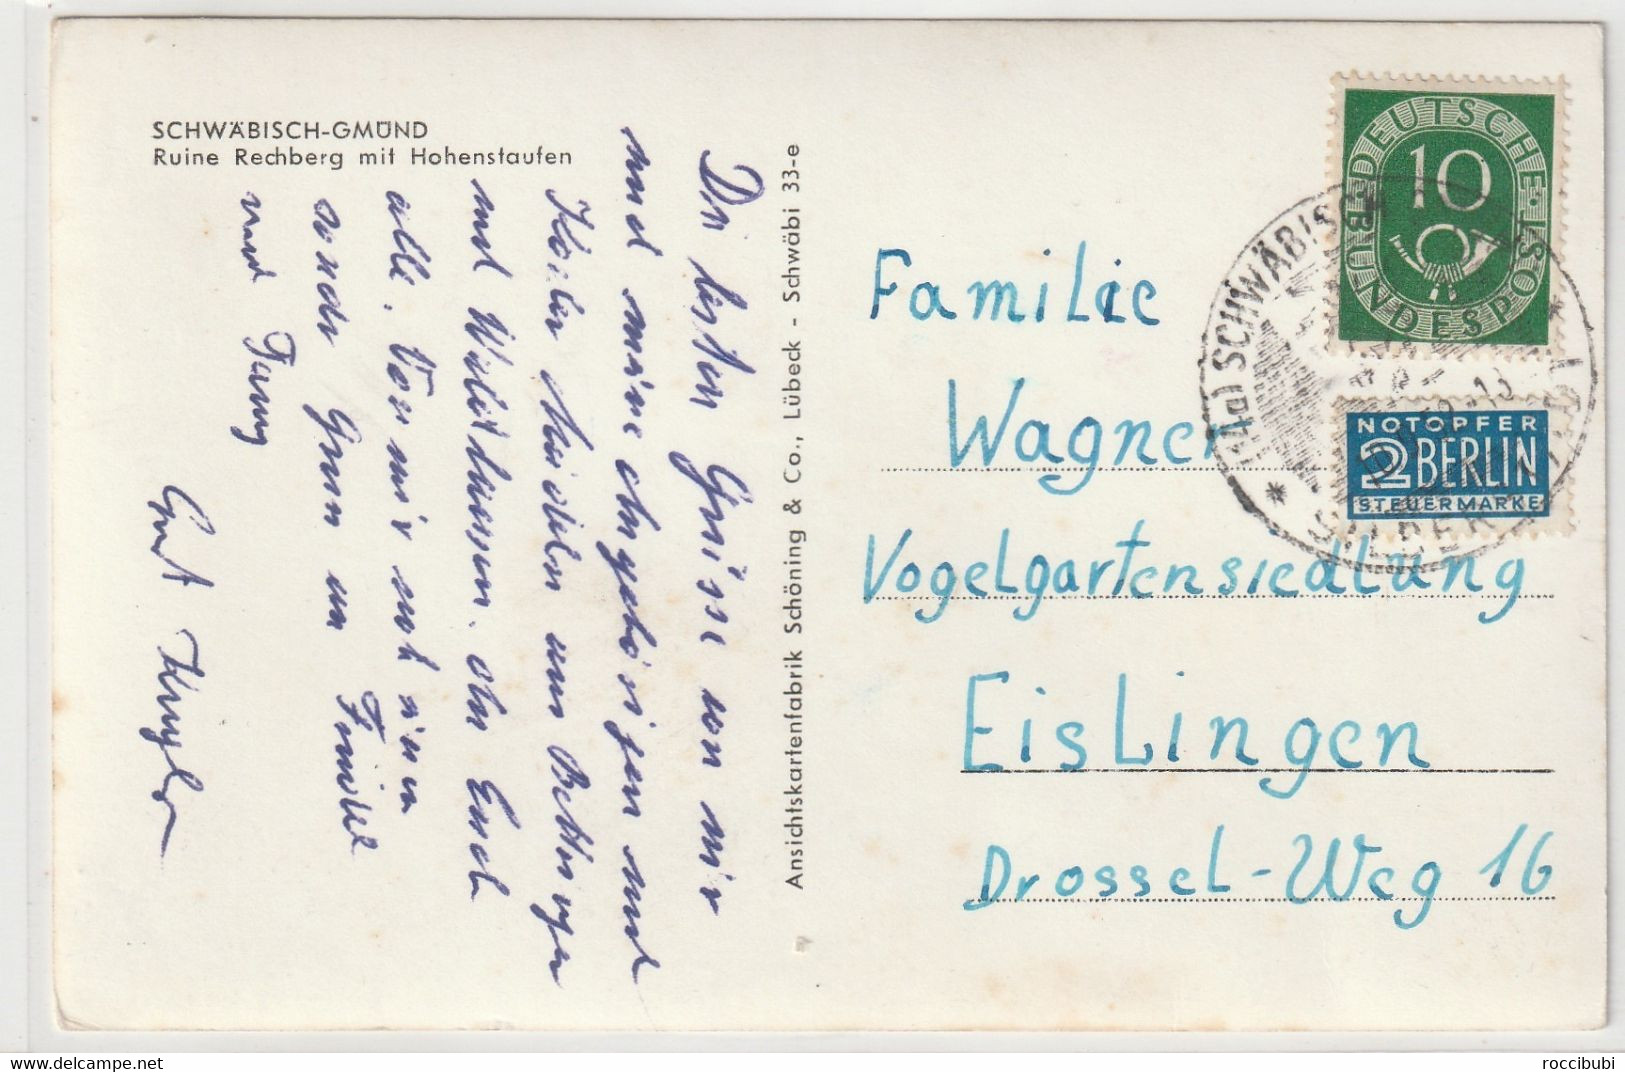 SCHWÄBISCH-GMÜND
Ruine Rechberg mit Hohenstaufen
Die besten Grüsse von mir
und meine Angehörigen und
aus Bettringen
und Waldhausen. An Euch
alle. Von mir noch einen
Gruss an
und Fanny
Gert
Ansichtskartenfabrik Schöning & Co., Lübeck - Schwäbi 33-e
DEUTSCHE BUNDESPOST
10
NOTOPFER
2 BERLIN
STEUERMARKE
(14a) SCHWÄBISCH
SILBER
Familie
Wagner
Vogelgartensiedlung
Eislingen
Drossel-Weg 16
delcampe.net
roccibubi